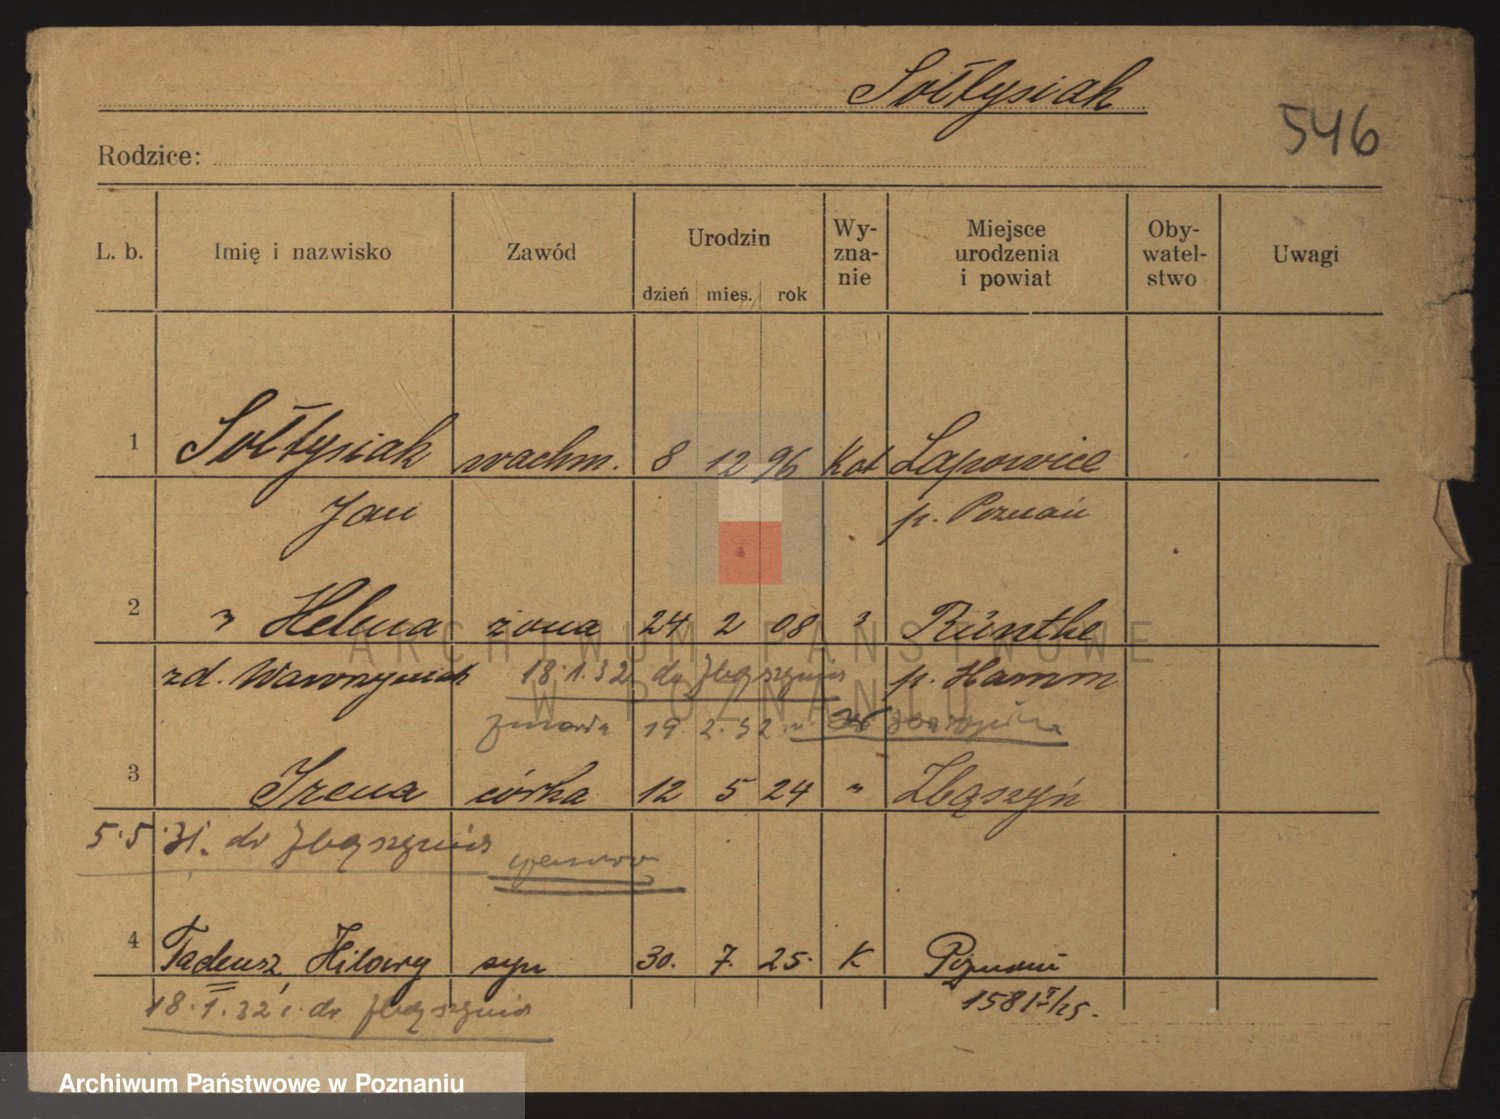 Sołtysiak
546
Rodzice:
L. b. Imię i nazwisko Zawód Urodzin dzień mies. rok Wy-zna-nie Miejsce urodzenia i powiat Oby-watel-stwo Uwagi
1 Sołtysiak wachm. 8 12 96 Kat Łapowice
Jan p. Poznań
2 " Helena żona 24 2 08 " Rünthe
zd. Wawrzyniak 18.1.32 do Zbąszynia p. Hamm
19.2.32
3 Irena córka 12 5 24 " Zbąszyń
5.5.31. do Zbąszynia
4 Tadeusz, Hilary syn 30. 7. 25. K Poznań
18.1.32 r. do Zbąszynia 1581
ARCHIWUM PAŃSTWOWE
W POZNANIU
Archiwum Państwowe w Poznaniu